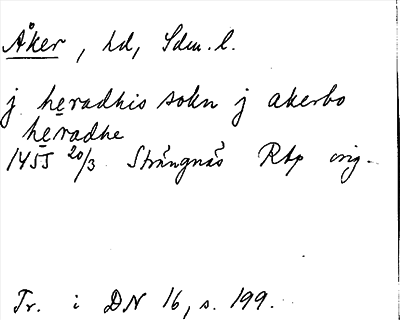 Åker, hd, Sdm. l.
j heradhis sokn j akerbo
heradhe
1455 20/3 Strängnäs Rbp orig.
Tr. i DN 16, s. 199.